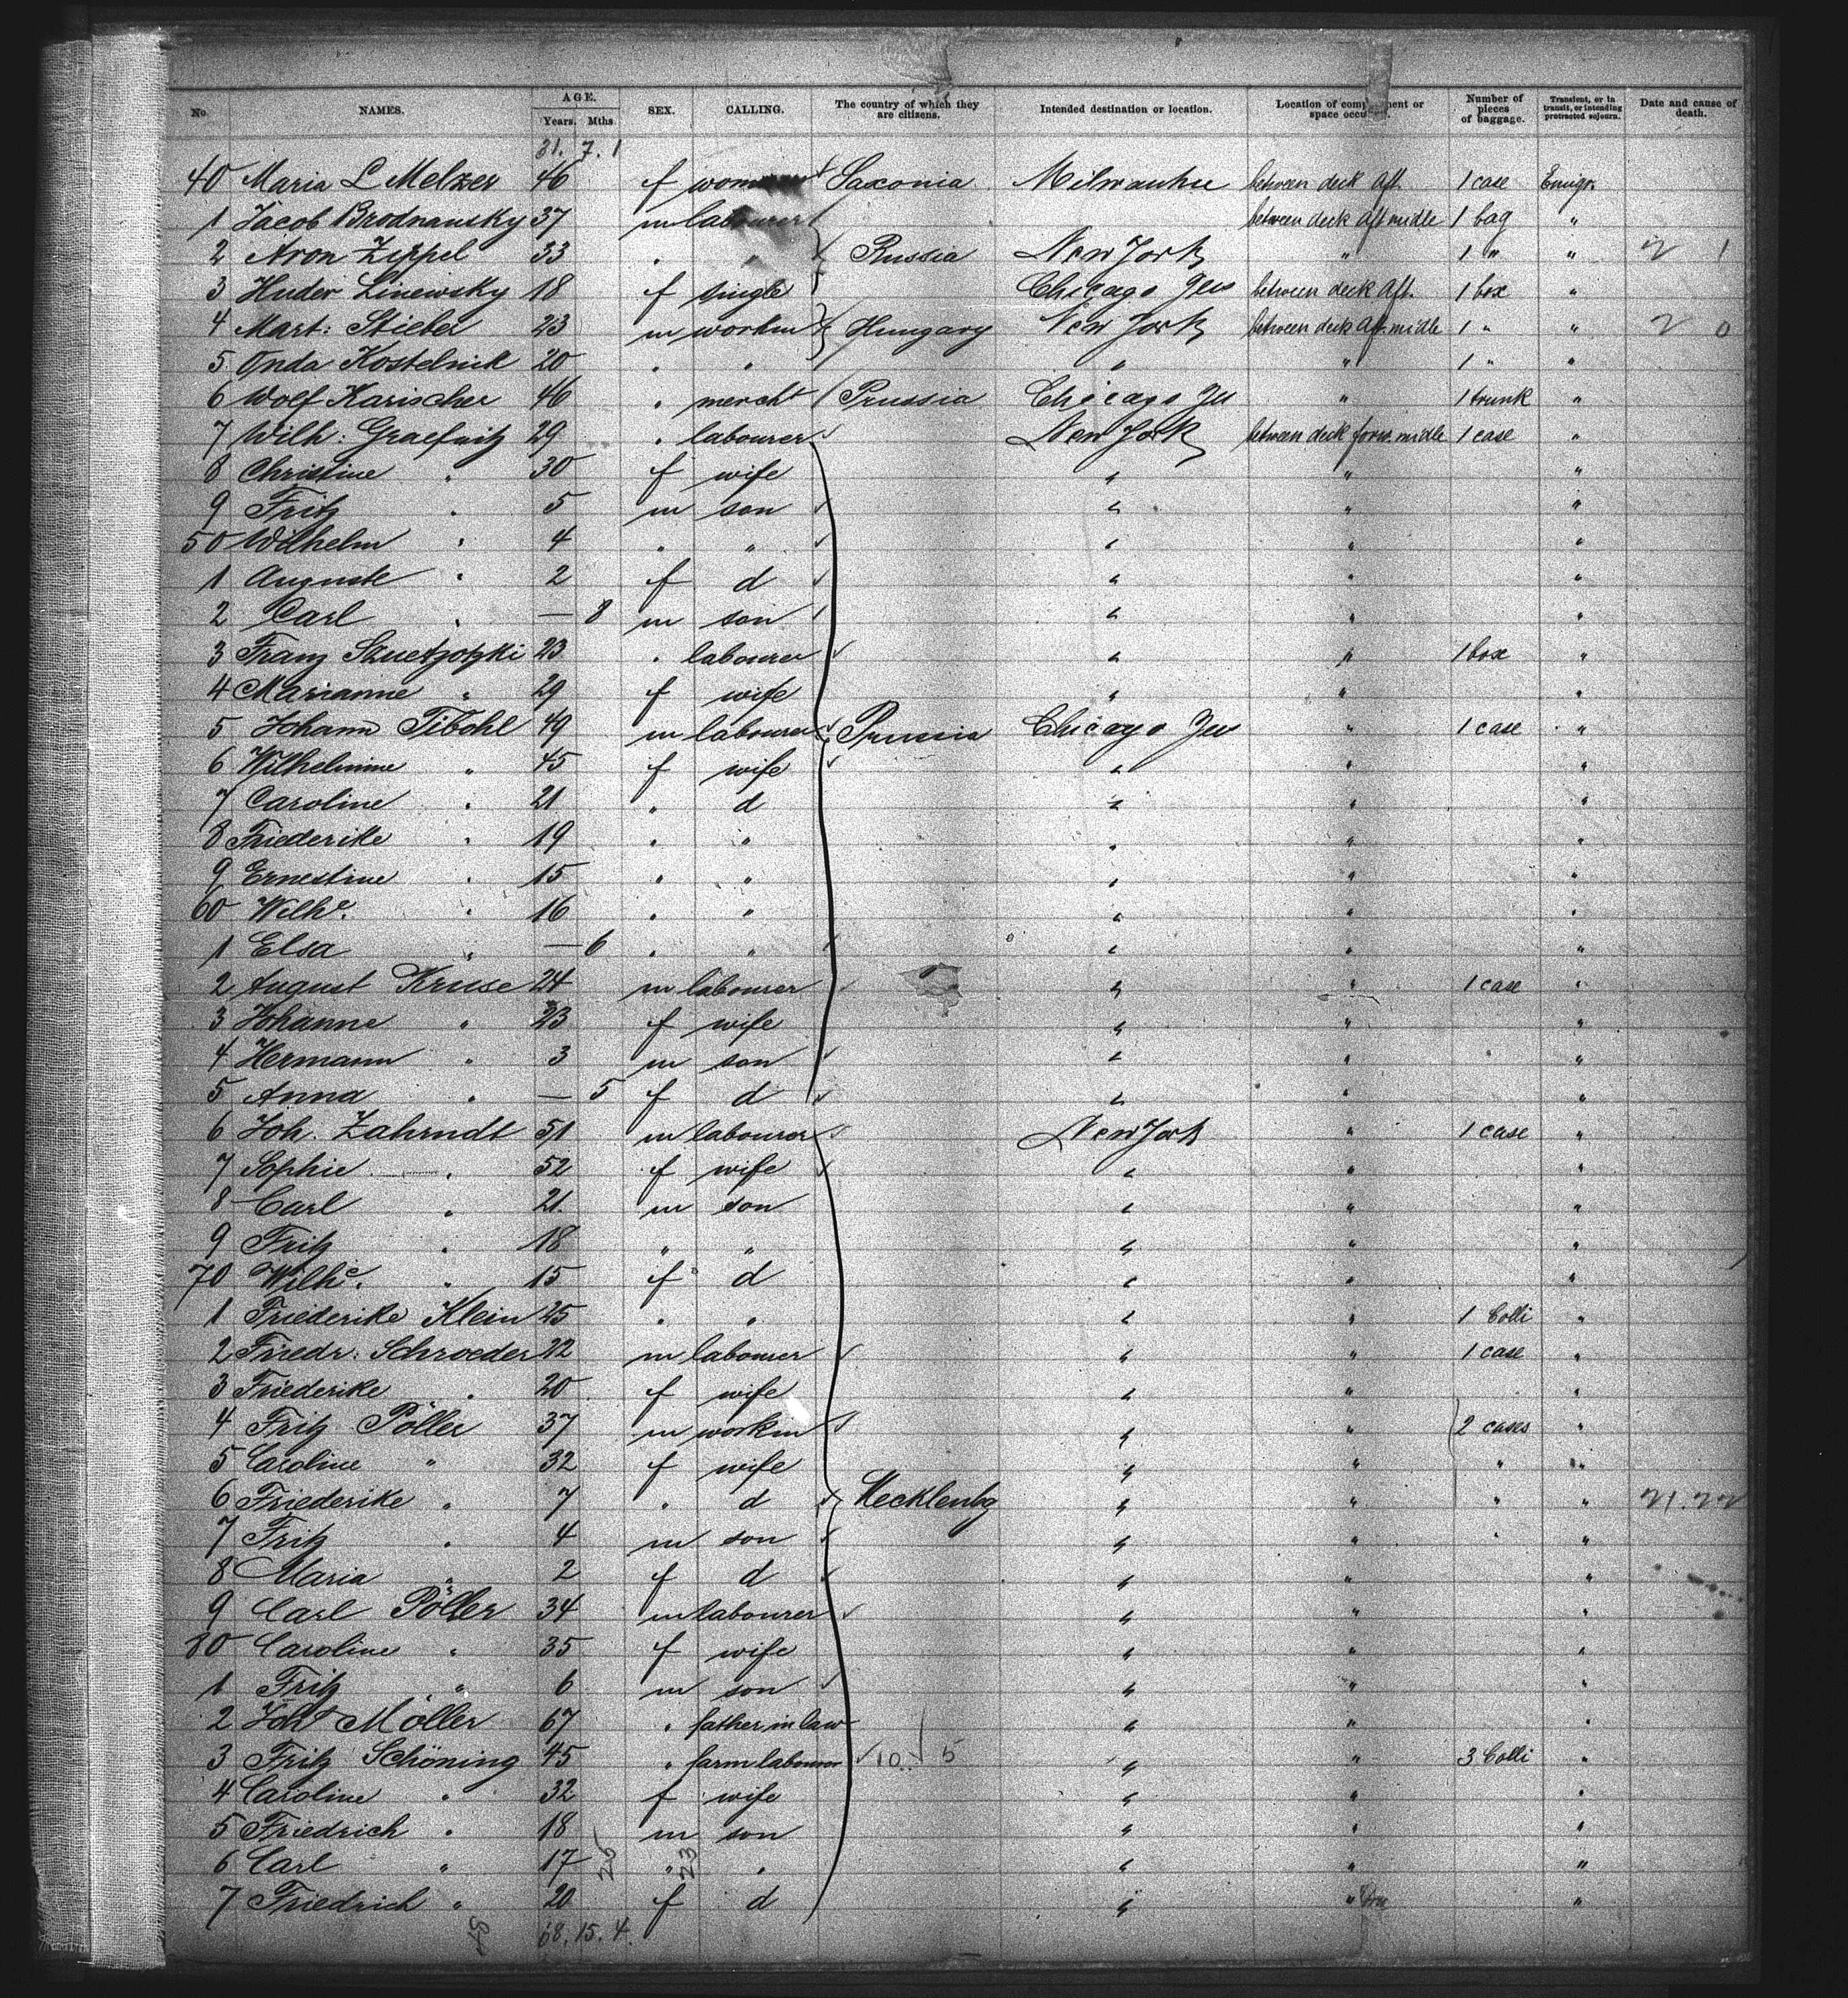 No. NAMES. AGE. Years. Mths. SEX. CALLING. The country of which they are citizens. Intended destination or location. Location of compartment or space occupied. Number of pieces of baggage. Transient, or in transit, or intending protracted sojourn. Date and cause of death.
31. 7. 1
40 Maria L Melzer 46 f woman Saxonia Milwaukee between deck Aft. 1 case Emigr.
1 Jacob Brodnansky 37 m labourer between deck Aft midle 1 bag "
2 Aron Zippel 33 " " Russia New York " 1 " " 2 1
3 Huder Linewsky 18 f single Chicago Ills between deck Aft. 1 box "
4 Mart: Stieber 23 m workm Hungary New York between deck Aft midle 1 " " 2 0
5 Onda Kostelnik 20 " " " " 1 " "
6 Wolf Karischer 46 " mercht Prussia Chicago Ills " 1 trunk "
7 Wilh: Graefnitz 29 " labourer New York between deck forw. midle 1 case "
8 Christine " 30 f wife " " "
9 Fritz " 5 m son " " "
50 Wilhelm " 4 " " " " "
1 Auguste " 2 f d " " "
2 Carl " — 8 m son " " "
3 Franz 23 " labourer " " 1 box "
4 Marianne " 29 f wife " " "
5 Johann Tibohl 49 m labourer Prussia Chicago Ills " 1 case "
6 Wilhelmine " 45 f wife " " "
7 Caroline " 21 " d " " "
8 Friederike " 19 " " " " "
9 Ernestine " 15 " " " " "
60 Wilhe. " 16 " " " " "
1 Elsa " — 6 " " " " "
2 August Kruse 24 m labourer " " 1 case "
3 Johanne " 23 f wife " " "
4 Hermann " 3 m son " " "
5 Anna " — 5 f d " " "
6 Joh. Zahrndt 51 m labourer New York " 1 case "
7 Sophie " 52 f wife " " "
8 Carl " 21. m son " " "
9 Fritz " 18 " " " " "
70 Wilhe. " 15 f d " " "
1 Friederike Klein 25 " " " " 1 Colli "
2 Friedr: Schroeder 22 m labourer " " 1 case "
3 Friederike " 20 f wife " " "
4 Fritz Pöller 37 m workm " " 2 cases "
5 Caroline " 32 f wife " " " "
6 Friederike " 7 " d Mecklenbg " " " " 21. 22
7 Fritz " 4 m son " " " "
8 Maria " 2 f d " " "
9 Carl Pöller 34 m labourer " " "
80 Caroline " 35 f wife " " "
1 Fritz " 6 m son " " "
2 Joh. Möller 67 " father in law " " "
3 Fritz Schöning 45 " farm labourer 10 5 " " 3 Colli "
4 Caroline " 32 f wife " " "
5 Friedrich " 18 m son " " "
6 Carl " 17 26 " 23 " " " "
7 Friedrich " 20 f d " " "
48 68. 15. 4.